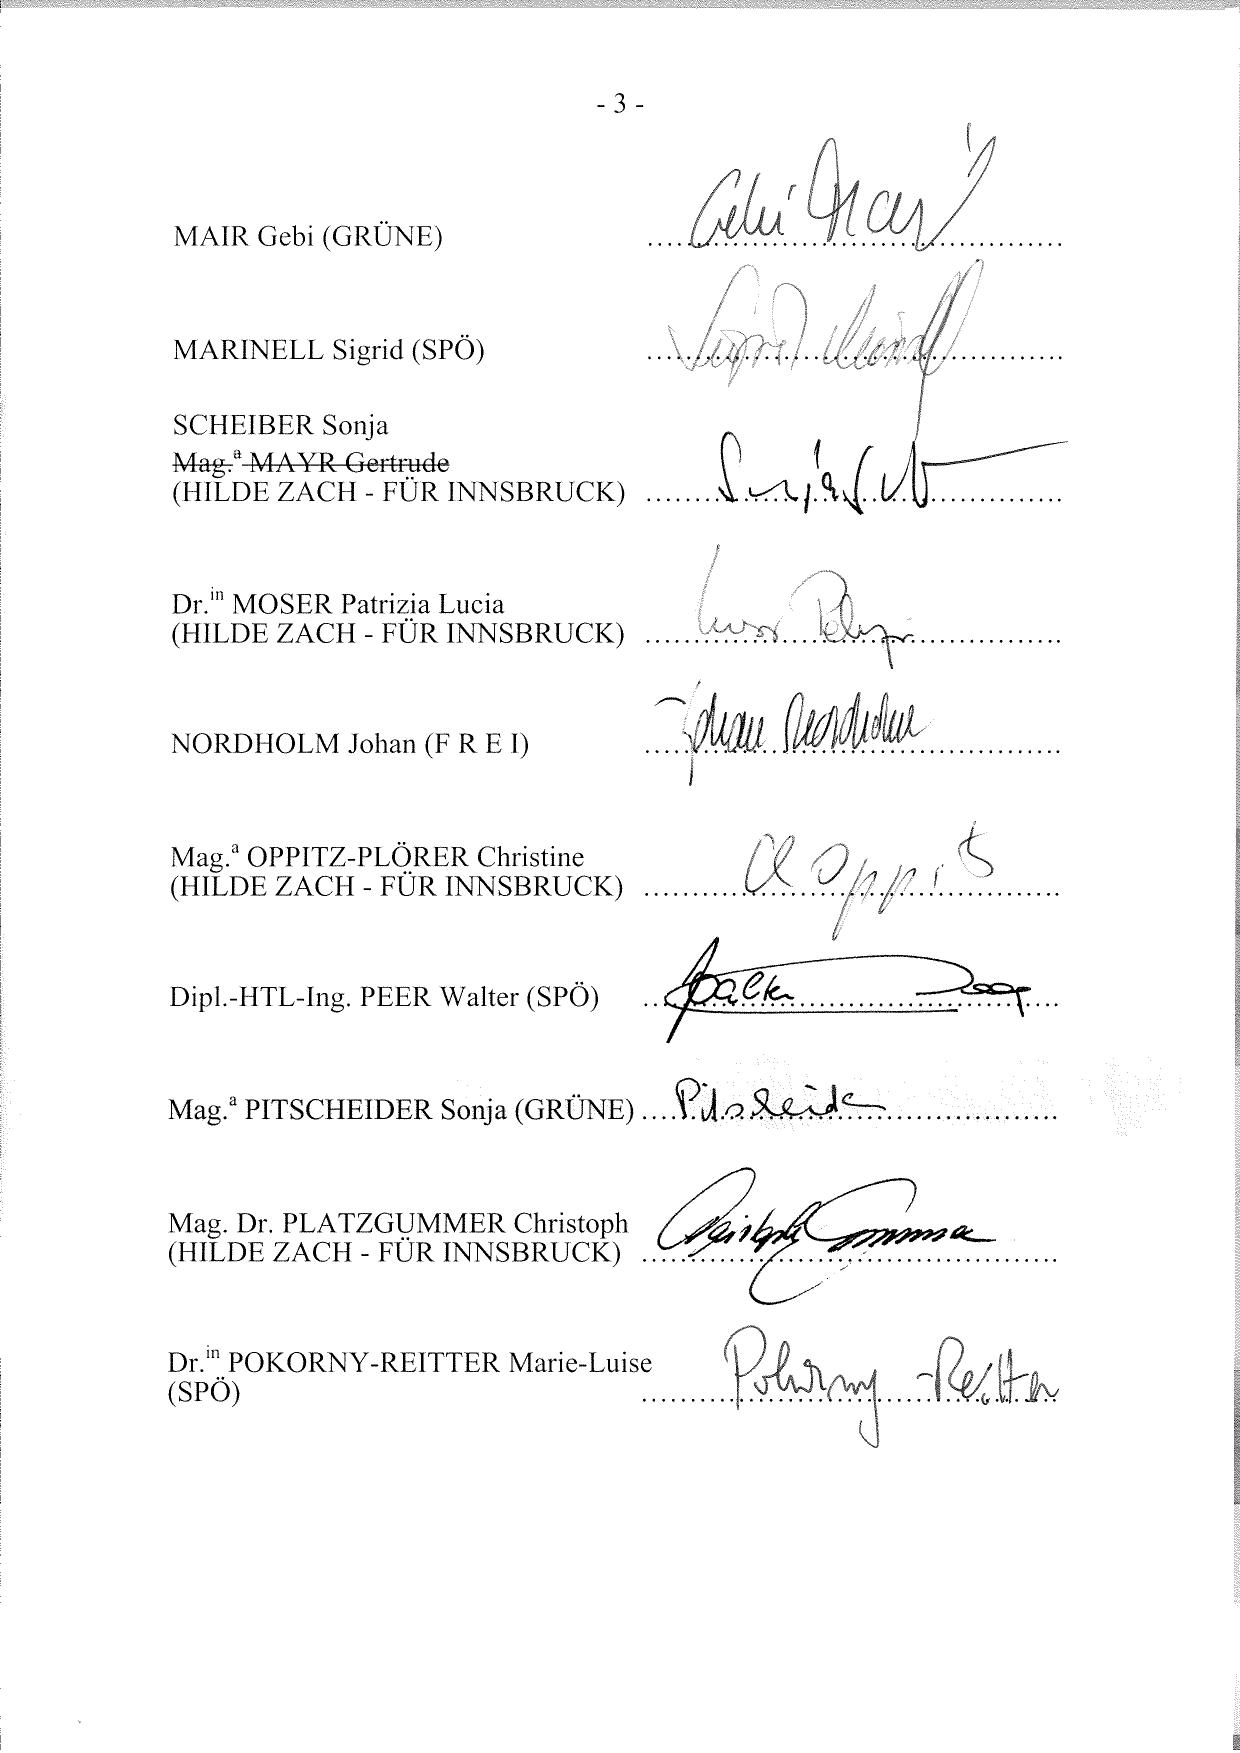 - 3 -
MAIR Gebi (GRÜNE) ........ Gebi Mair
MARINELL Sigrid (SPÖ) ........ Sigrid Marinell
SCHEIBER Sonja
Mag.ª MAYR Gertrude
(HILDE ZACH - FÜR INNSBRUCK) ........ Sonja
Dr.in MOSER Patrizia Lucia
(HILDE ZACH - FÜR INNSBRUCK) ........
NORDHOLM Johan (F R E I) ........ Johan Nordholm
Mag.ª OPPITZ-PLÖRER Christine
(HILDE ZACH - FÜR INNSBRUCK) ........ C Oppitz
Dipl.-HTL-Ing. PEER Walter (SPÖ) ........ Walter Peer
Mag.ª PITSCHEIDER Sonja (GRÜNE) ........ Pitscheider
Mag. Dr. PLATZGUMMER Christoph
(HILDE ZACH - FÜR INNSBRUCK) ........ Christoph
Dr.in POKORNY-REITTER Marie-Luise
(SPÖ) ........ Pokorny-Reitter